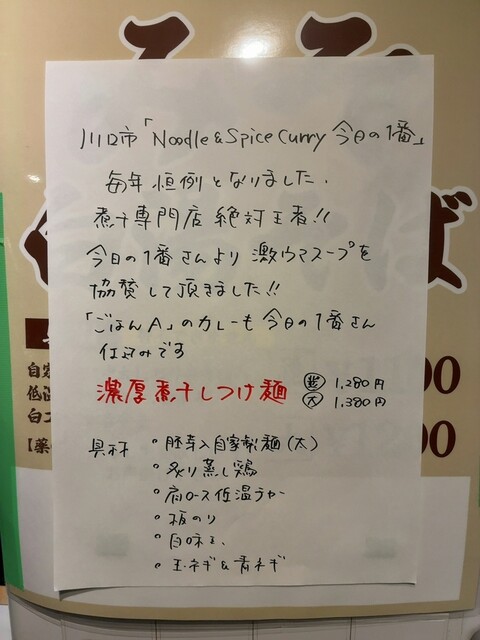 川口市「Noodle & Spice Curry 今日の1番」
毎年 恒例となりました.
煮干専門店 絶対王者!!
今日の1番さんより 激ウマスープを
協賛して頂きました!!
「ごはんA」のカレーも 今日の1番さん
仕込みです
濃厚煮干しつけ麺 並 1,280円
大 1,380円
具材 ・胚芽入自家製麺(太)
・炙り蒸し鶏
・肩ロース低温チャー
・板のり
・白味玉
・玉ネギ&青ネギ
ば
自家
低温
白
【薬
00
00